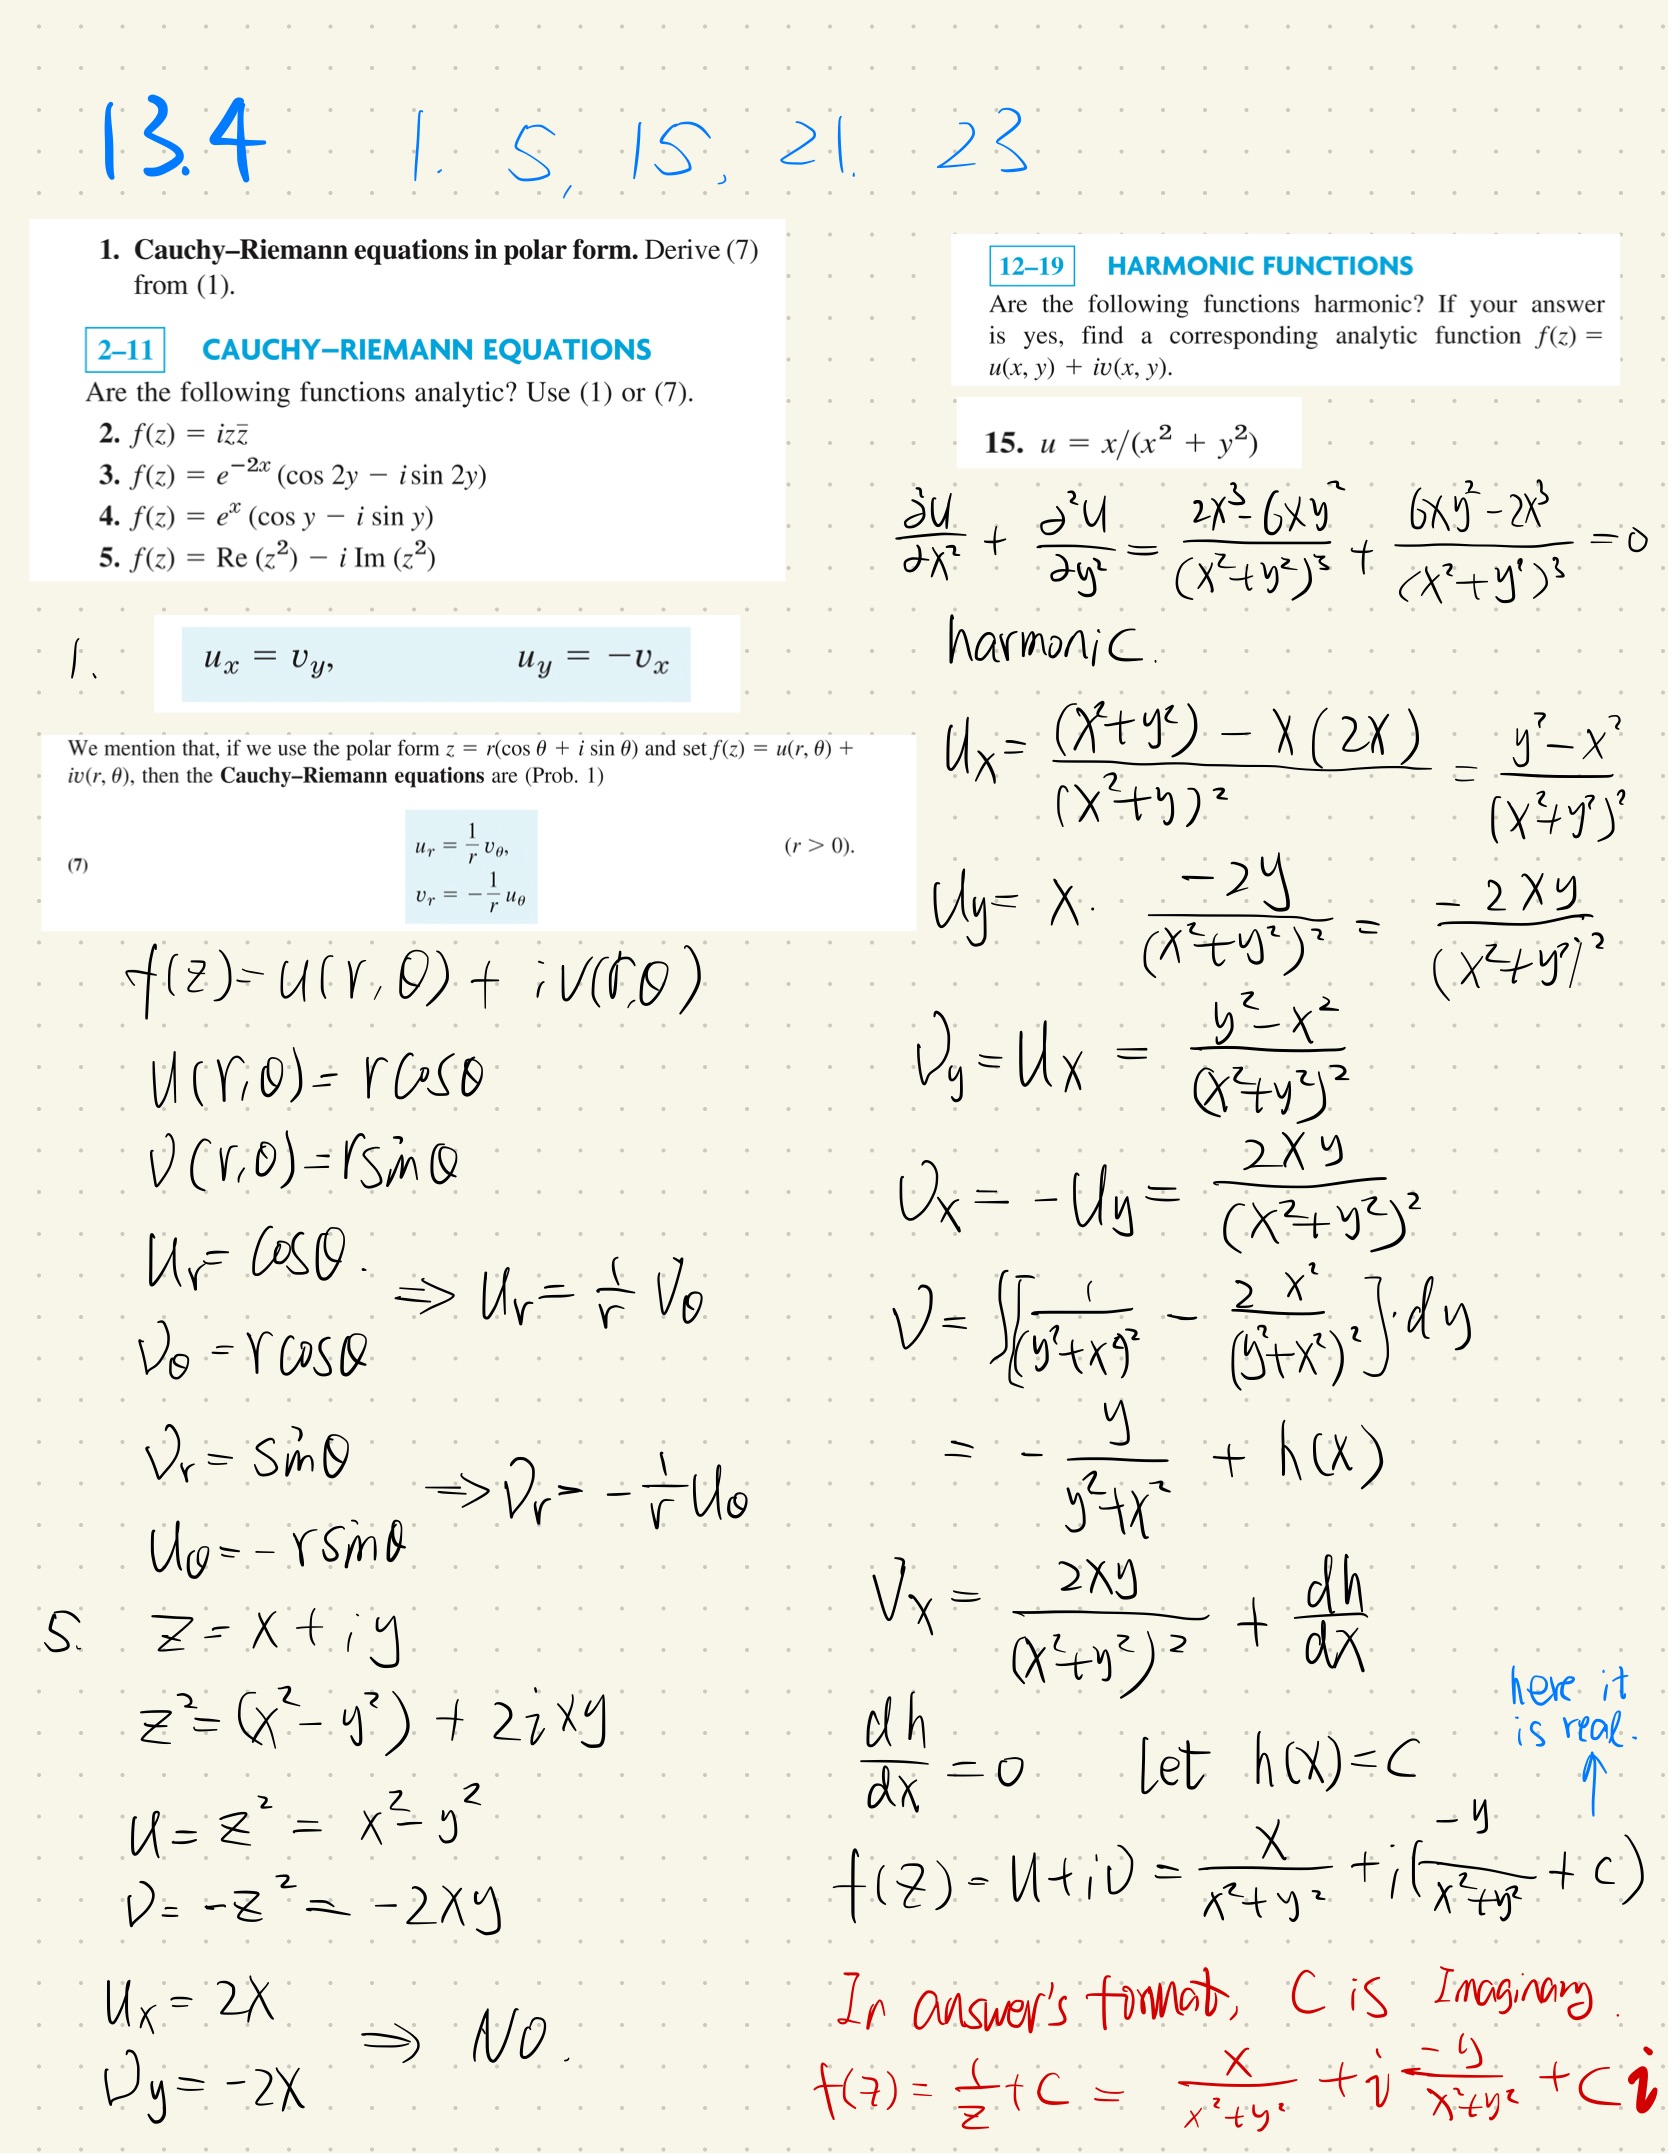 13.4 1. 5, 15, 21. 23
1. Cauchy–Riemann equations in polar form. Derive (7)
from (1).
2–11 CAUCHY–RIEMANN EQUATIONS
Are the following functions analytic? Use (1) or (7).
2. f(z) = izz̄
3. f(z) = e^{-2x} (cos 2y − i sin 2y)
4. f(z) = e^x (cos y − i sin y)
5. f(z) = Re (z²) − i Im (z²)
1.
u_x = v_y, u_y = −v_x
We mention that, if we use the polar form z = r(cos θ + i sin θ) and set f(z) = u(r, θ) +
iv(r, θ), then the Cauchy–Riemann equations are (Prob. 1)
(7) u_r = 1/r v_θ, (r > 0).
v_r = −1/r u_θ
f(z) = u(r, θ) + iv(r, θ)
u(r, θ) = r cosθ
v(r, θ) = r sinθ
u_r = cosθ.
⇒ u_r = 1/r v_θ
v_θ = r cosθ
v_r = sinθ
⇒ v_r = −1/r u_θ
u_θ = −r sinθ
5. z = x + iy
z² = (x² − y²) + 2ixy
u = z² = x² − y²
v = −z² = −2xy
u_x = 2x
⇒ NO.
v_y = −2x
12–19 HARMONIC FUNCTIONS
Are the following functions harmonic? If your answer
is yes, find a corresponding analytic function f(z) =
u(x, y) + iv(x, y).
15. u = x/(x² + y²)
∂²u/∂x² + ∂²u/∂y² = (2x³ − 6xy²)/(x² + y²)³ + (6xy² − 2x³)/(x² + y²)³ = 0
harmonic.
u_x = ((x² + y²) − x(2x))/(x² + y)² = (y² − x²)/(x² + y²)²
u_y = x · −2y/(x² + y²)² = −2xy/(x² + y²)²
v_y = u_x = (y² − x²)/(x² + y²)²
v_x = −u_y = 2xy/(x² + y²)²
v = ∫[1/(y² + x²)² − 2x²/(y² + x²)²]·dy
= − y/(y² + x²) + h(x)
v_x = 2xy/(x² + y²)² + dh/dx
dh/dx = 0 Let h(x) = C
here it
is real.
↑
f(z) = u + iv = x/(x² + y²) + i(−y/(x² + y²) + c)
In answer's format, C is Imaginary.
f(z) = 1/z + C = x/(x² + y²) + i −y/(x² + y²) + Ci